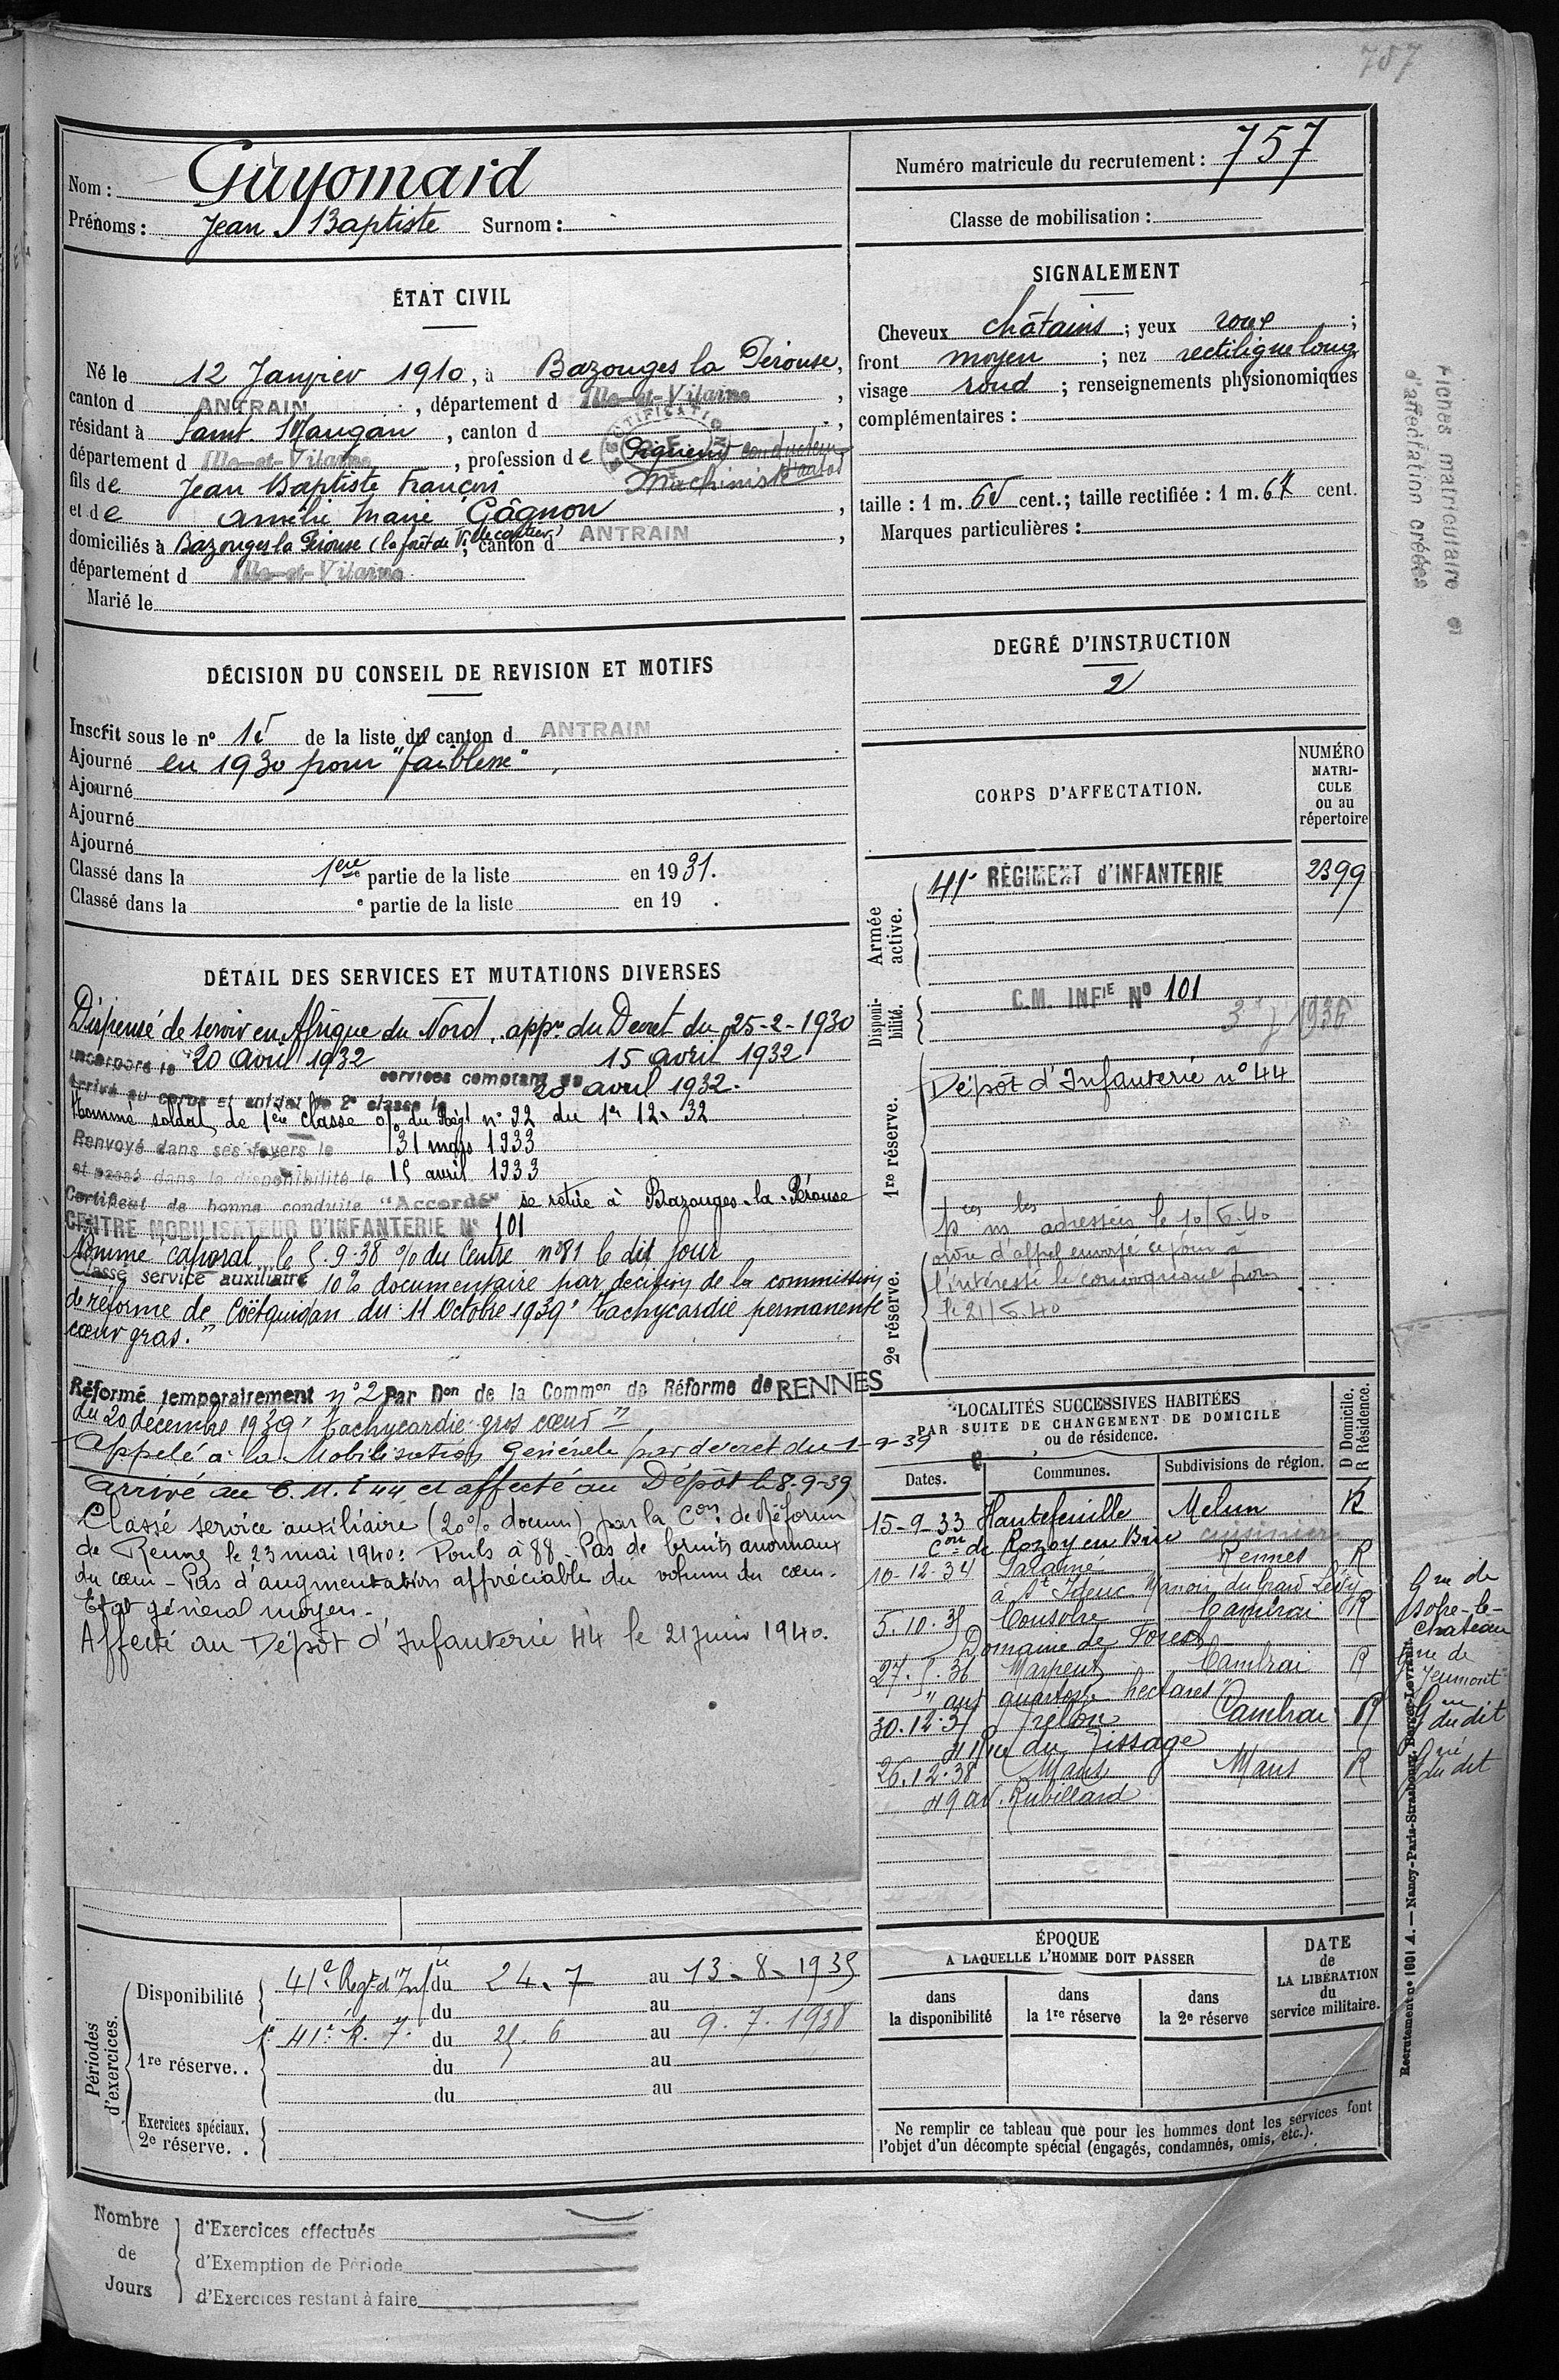 757
Nom : Guyomard
Prénoms : Jean Baptiste Surnom :
Numéro matricule du recrutement : 757
Classe de mobilisation :
ÉTAT CIVIL
Né le 12 Janvier 1910, à Bazouges la Pérouse,
canton d ANTRAIN, département d Ille-et-Vilaine,
résidant à Saint. Maugan, canton d ,
département d Ille-et-Vilaine, profession de conducteur
Machiniste d'autos
fils de Jean Baptiste François
et de Amélie Marie Gâgnon,
domiciliés à Bazouges la Pérouse (la forêt de Villecartier), canton d ANTRAIN,
département d Ille-et-Vilaine
Marié le
SIGNALEMENT
Cheveux châtains ; yeux roux ;
front moyen ; nez rectiligne long
visage rond ; renseignements physionomiques
complémentaires :
taille : 1 m. 65 cent. ; taille rectifiée : 1 m. 67 cent.
Marques particulières :
Fiches matriculaire et
d'affectation créées
DÉCISION DU CONSEIL DE REVISION ET MOTIFS
Inscrit sous le n° 15 de la liste du canton d ANTRAIN
Ajourné en 1930 pour "faiblesse"
Ajourné
Ajourné
Ajourné
Classé dans la 1ere partie de la liste en 1931.
Classé dans la e partie de la liste en 19 .
DEGRÉ D'INSTRUCTION
2
CORPS D'AFFECTATION.
NUMÉRO
MATRI-
CULE
ou au
répertoire
Armée
active.
41e RÉGIMENT d'INFANTERIE 2399
Disponi-
bilité.
C.M. INFIE No 101
1re réserve.
Dépôt d'Infanterie n° 44
2e réserve.
pces mles adressées le 10/5.40
ordre d'appel envoyé ce jour à
l'intéressé le convoquant pour
le 21/5.40
DÉTAIL DES SERVICES ET MUTATIONS DIVERSES
Dispensé de servir en Afrique du Nord, appon du Decret du 25-2-1930
Incorporé le 20 avril 1932
services comptant du 15 avril 1932
Arrivé au corps et soldat de 2e classe le 20 avril 1932.
Nommé soldat de 1ère classe o/ du Régt n° 92 du 1er 12. 32
Renvoyé dans ses foyers le 31 mars 1933
et passé dans la disponibilité le 15 avril 1933
Certificat de bonne conduite "Accordé" se retire à Bazouges-la-Pérouse
CENTRE MOBILISATEUR D'INFANTERIE No 101
Nommé caporal le 5.9.38 o/o du Centre n°81 le dit jour
Classé service auxiliaire 10% documentaire par décision de la commission
de réforme de Coëtquidan du 11 Octobre 1939 "tachycardie permanente
cœur gras."
Réformé temporairement n°2 Par Don de la Common de Réforme de RENNES
du 20 décembre 1939 "tachycardie gros cœur"
Appelé à la Mobilisation Générale par décret du 1-9-39
Arrivé au C.M.I 44 et affecté au Dépôt le 8-9-39
Classé service auxiliaire (20% docum) par la Con de Réforme
de Rennes le 23 mai 1940: Pouls à 88. Pas de bruits anormaux
du cœur - Pas d'augmentation appréciable du volume du cœur.
Etat général moyen.
Affecté au Dépôt d'Infanterie 44 le 21 juin 1940.
LOCALITÉS SUCCESSIVES HABITÉES
PAR SUITE DE CHANGEMENT DE DOMICILE
ou de résidence.
D Domicile.
R Résidence.
Dates. Communes. Subdivisions de région.
15-9-33 Hautefeuille Melun R
Con de Rozoy en Brie
10-12-34 Paramé Rennes R
à St Ideuc Manoir du Grand
5.10.35 Cousolre Cambrai R
Domaine de Forest
27.5.36 Marpent Cambrai R
"aux quatorze hectares"
30.12.37 Trélon Cambrai R
41 Rue du Tissage
26.12.38 Mans Mans R
49 av. Rubillard
Gne de
Solre-le-
Château
Gne de
Jeumont
Gne
du dit
Gne
du dit
Périodes
d'exercices.
Disponibilité 41e Regt d'Infie du 24-7 au 13-8-1935
du au
1re réserve.. 41e R.I. du 25.6 au 9.7.1938
du au
du au
Exercices spéciaux.
2e réserve. .
ÉPOQUE
A LAQUELLE L'HOMME DOIT PASSER
dans
la disponibilité
dans
la 1re réserve
dans
la 2e réserve
DATE
de
LA LIBÉRATION
du
service militaire.
Ne remplir ce tableau que pour les hommes dont les services font
l'objet d'un décompte spécial (engagés, condamnés, omis, etc.).
Recrutement n° 1601 A. — Nancy-Paris-Strasbourg, Berger-Levrault.
Nombre
de
Jours
d'Exercices effectués
d'Exemption de Période
d'Exercices restant à faire